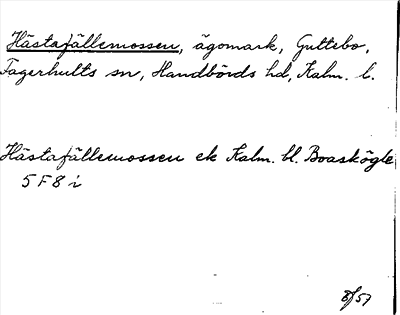 Hästafällemossen, ägomark, Guttebo,
Fagerhults sn, Handbörds hd, Kalm. l.
Hästafällemossen ek Kalm. bl. Boaskögle
5 F 8 i